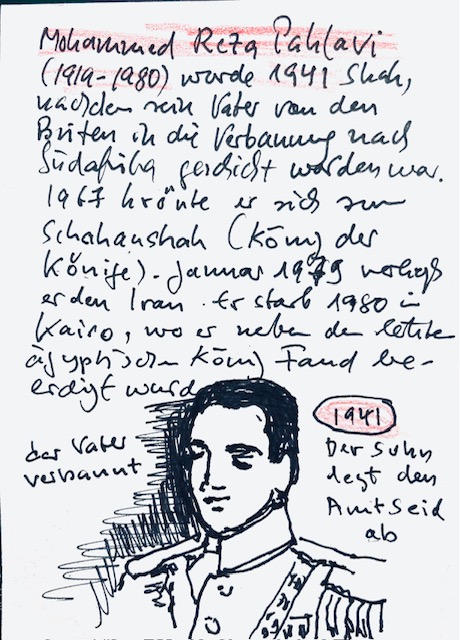 Mohammed Reza Pahlavi
(1919-1980) wurde 1941 Shah,
nachdem sein Vater von den
Briten in die Verbannung nach
Südafrika geschickt worden war.
1967 krönte er sich zum
Schahanshah (König der
Könige). Januar 1979 verließ
er den Iran. Er starb 1980 in
Kairo, wo er neben dem letzten
ägyptischen König Farud be-
erdigt wurde
der Vater
verbannt
1941
Der Sohn
legt den
Amtseid
ab